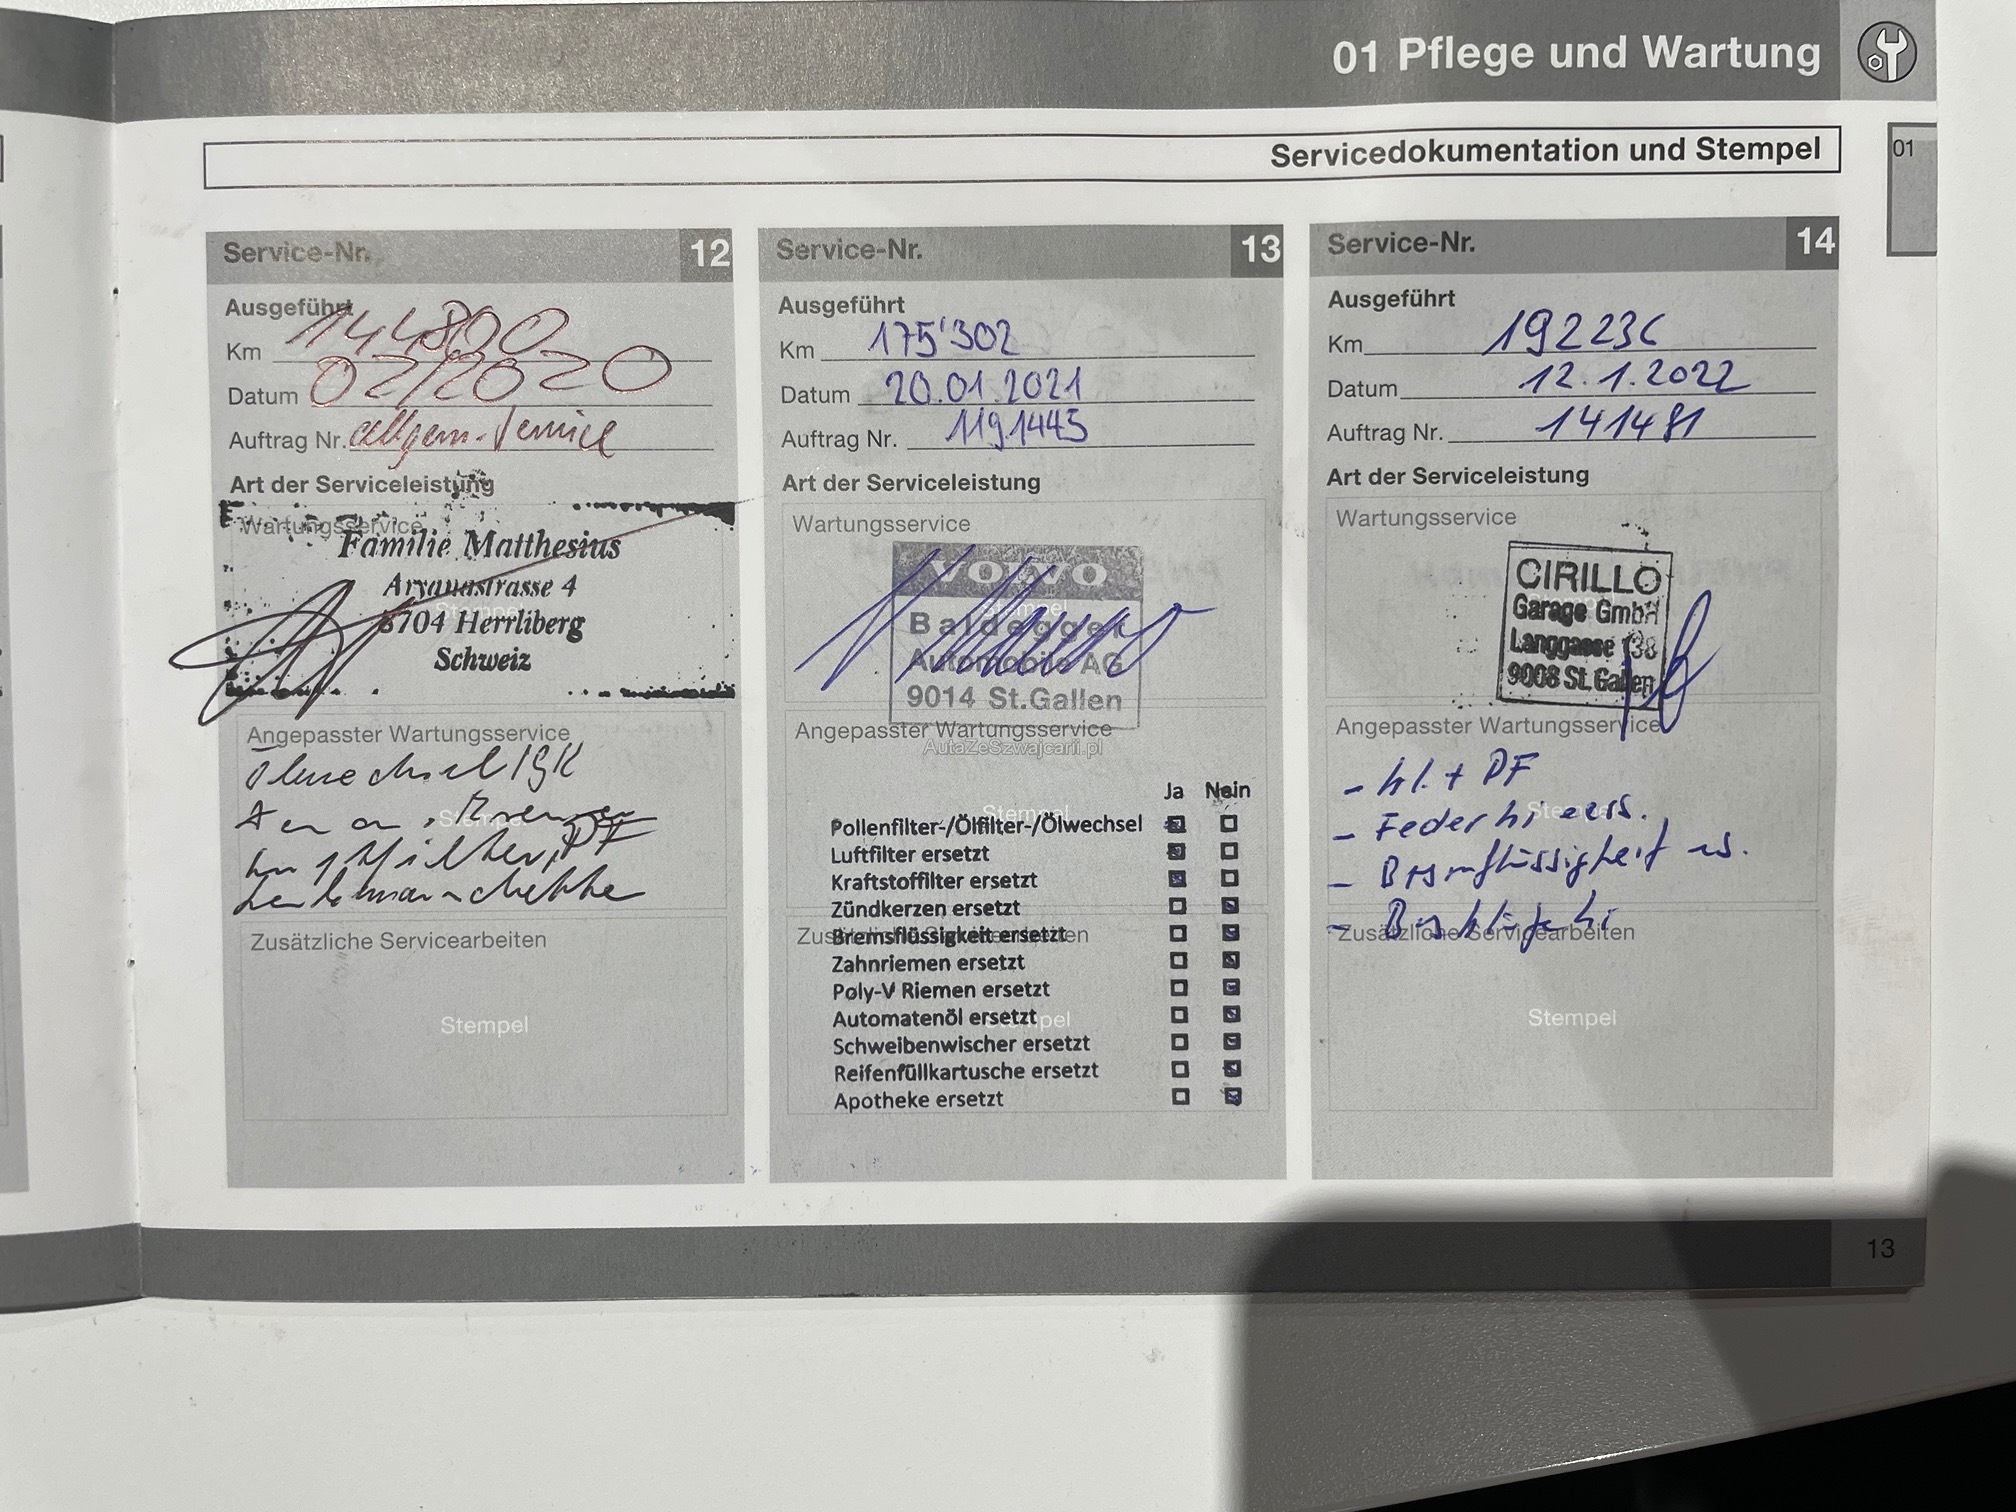 01 Pflege und Wartung
Servicedokumentation und Stempel
01
Service-Nr. 12
Ausgeführt
Km 144800
Datum 02/2020
Auftrag Nr. allgem. Service
Art der Serviceleistung
Wartungsservice
Familie Matthesius
4
8704 Herrliberg
Schweiz
Stempel
Angepasster Wartungsservice
Stempel
Zusätzliche Servicearbeiten
Stempel
Service-Nr. 13
Ausgeführt
Km 175'302
Datum 20.01.2021
Auftrag Nr. 1191445
Art der Serviceleistung
Wartungsservice
VOLVO
Stempel
Baldegger
Automobile AG
9014 St.Gallen
Angepasster Wartungsservice
AutaZeSzwajcarii.pl
Stempel
Ja Nein
Pollenfilter-/Ölfilter-/Ölwechsel
Luftfilter ersetzt
Kraftstoffilter ersetzt
Zündkerzen ersetzt
Zusätzliche Servicearbeiten
Bremsflüssigkeit ersetzt
Zahnriemen ersetzt
Poly-V Riemen ersetzt
Automatenöl ersetzt
Stempel
Schweibenwischer ersetzt
Reifenfüllkartusche ersetzt
Apotheke ersetzt
Service-Nr. 14
Ausgeführt
Km 192236
Datum 12.1.2022
Auftrag Nr. 141481
Art der Serviceleistung
Wartungsservice
CIRILLO
Garage GmbH
Langgasse 138
9008 St. Gallen
Angepasster Wartungsservice
+ PF
Stempel
Zusätzliche Servicearbeiten
Stempel
13